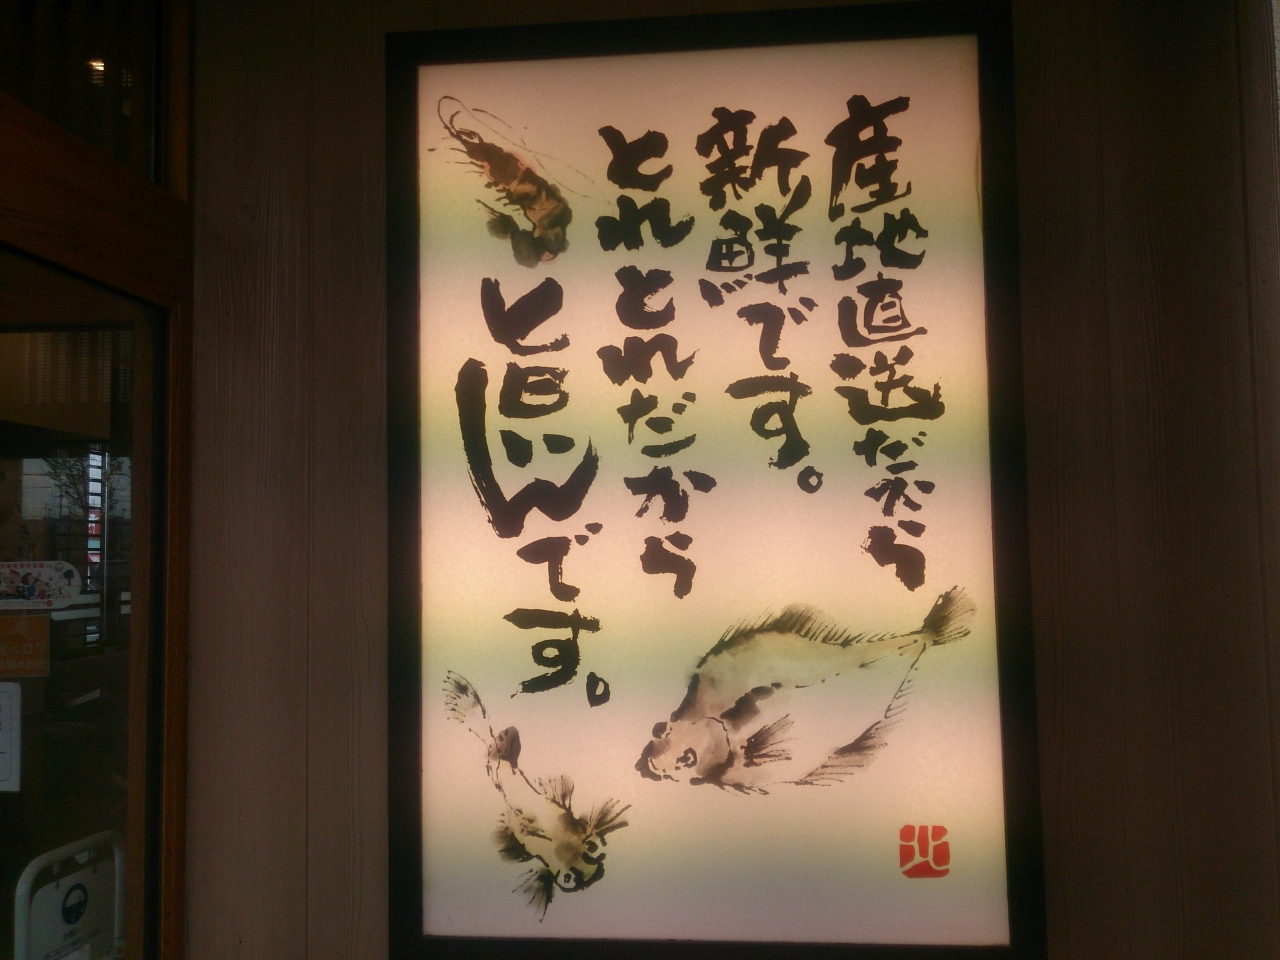 産地直送だから
新鮮です。
とれとれだから
旨いんです。